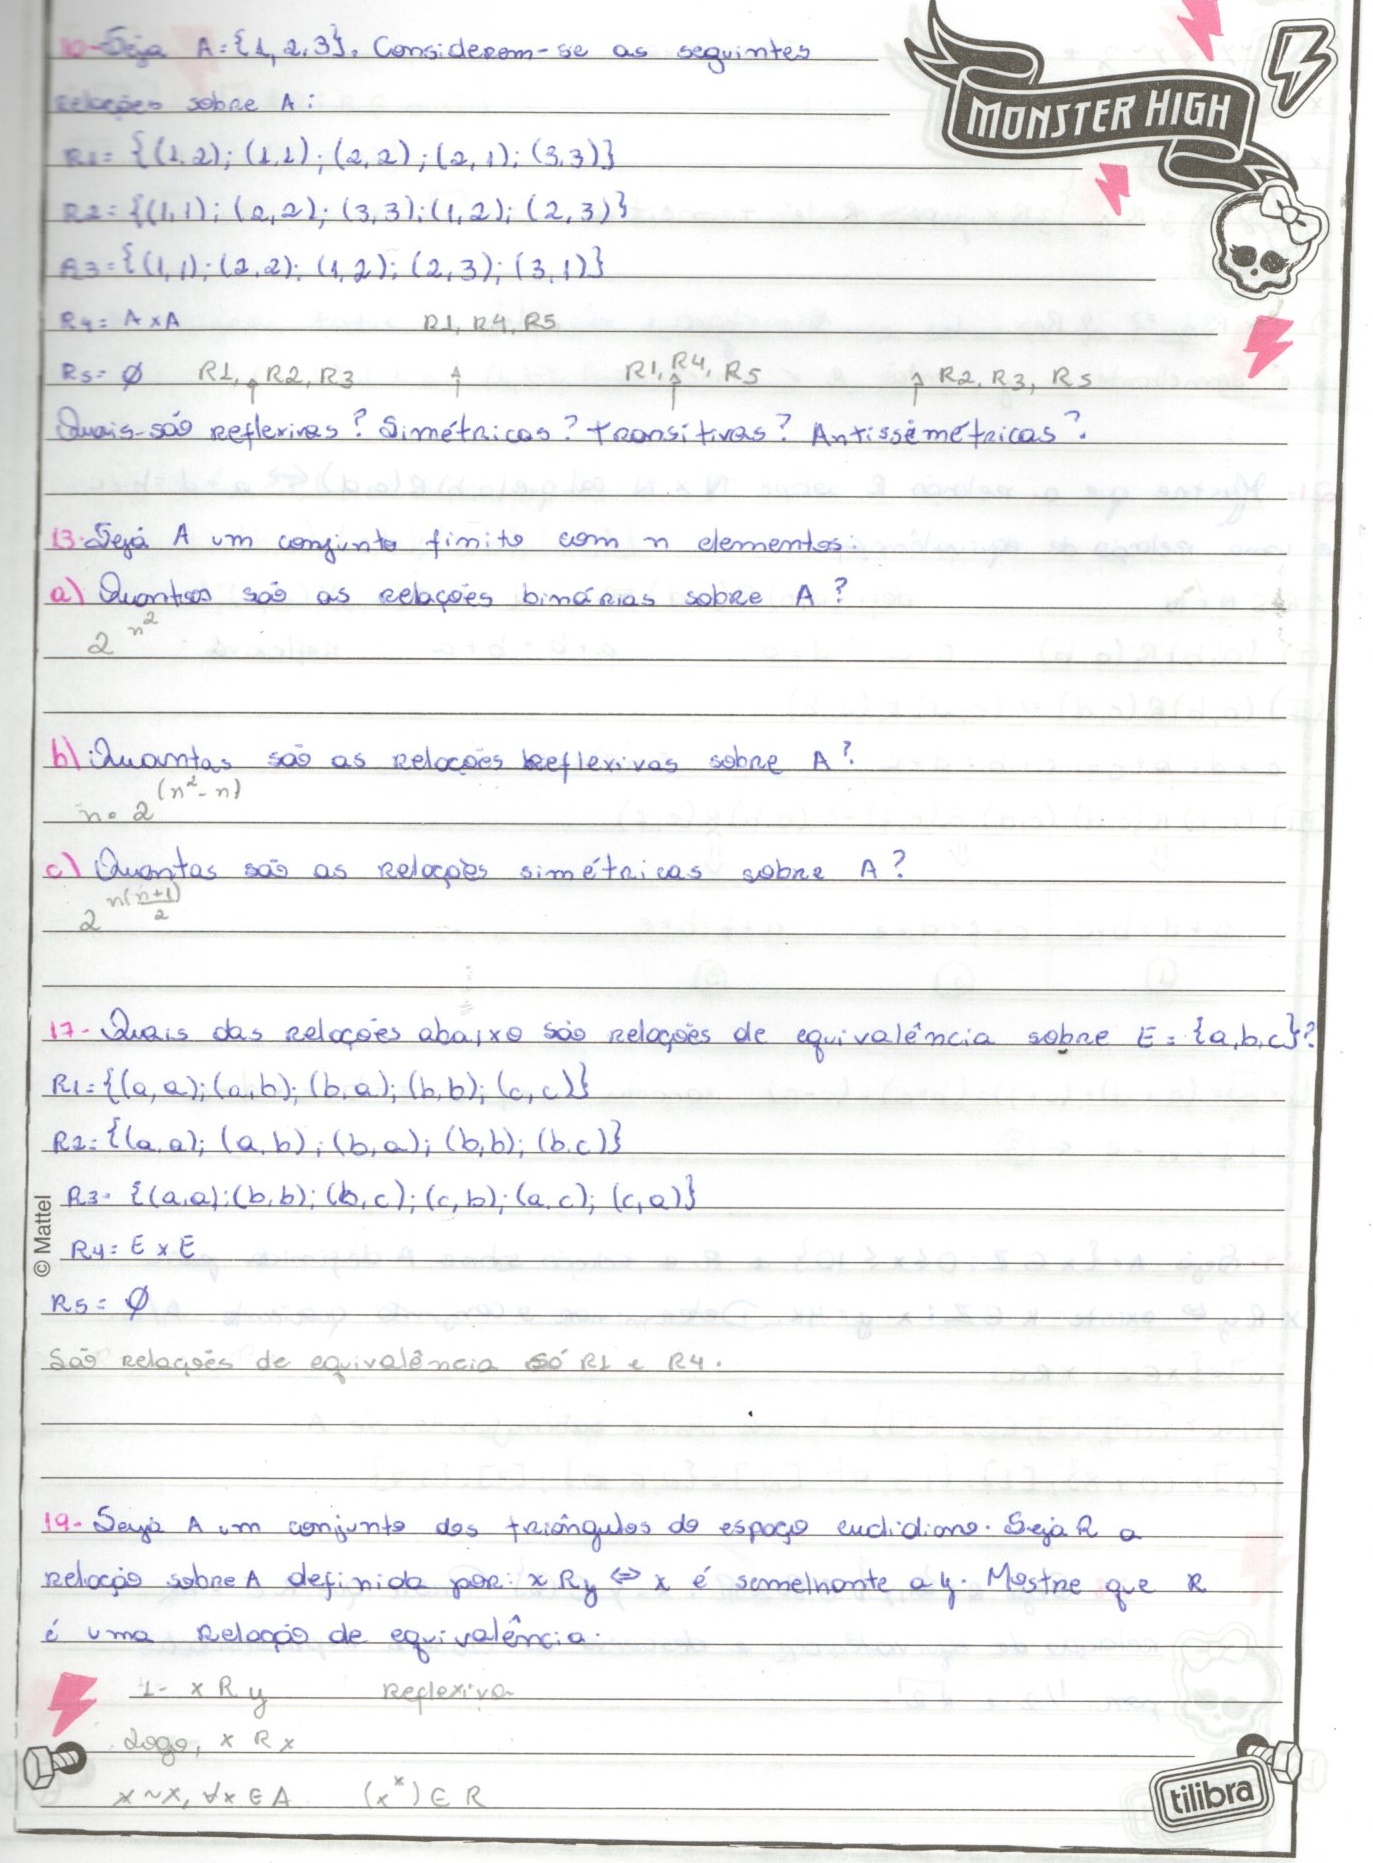 10-Seja A={1,2,3}. Considerem-se as seguintes
MONSTER HIGH
relações sobre A:
R1= {(1,2); (1,1); (2,2); (2,1); (3,3)}
R2={(1,1); (2,2); (3,3); (1,2); (2,3)}
R3={(1,1); (2,2); (1,2); (2,3); (3,1)}
R4= A x A R1, R4, R5
R5= ∅ R1, R2, R3 R1, R4, R5 R2, R3, R5
Quais são reflexivas? Simétricas? transitivas? Antissimétricas?
13-Seja A um conjunto finito com n elementos:
a) Quantas são as relações binárias sobre A?
2^n²
b) Quantas são as relações reflexivas sobre A?
n. 2^(n²-n)
c) Quantas são as relações simétricas sobre A?
2^n(n+1)/2
17- Quais das relações abaixo são relações de equivalência sobre E = {a,b,c}?
R1={(a,a);(a,b); (b,a); (b,b); (c,c)}
R2={(a,a); (a,b); (b,a); (b,b); (b,c)}
R3= {(a,a);(b,b); (b,c); (c,b); (a,c); (c,a)}
R4= E x E
R5= ∅
São relações de equivalência só R1 e R4.
© Mattel
19- Seja A um conjunto dos triângulos do espaço euclidiano. Seja R a
relação sobre A definida por: x R y ⇔ x é semelhante a y. Mostre que R
é uma relação de equivalência.
1- x R y Reflexiva
Logo, x R x
x ~ x, ∀x ∈ A (x^x) ∈ R
tilibra